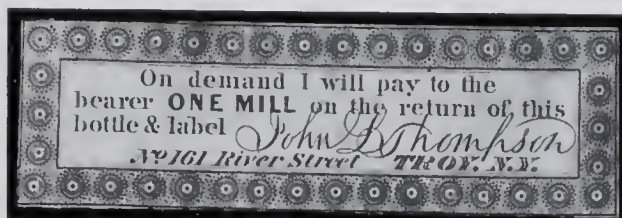 On demand I will pay to the
bearer ONE MILL on the return of this
bottle & label John L Thompson
No 161 River Street TROY, N.Y.